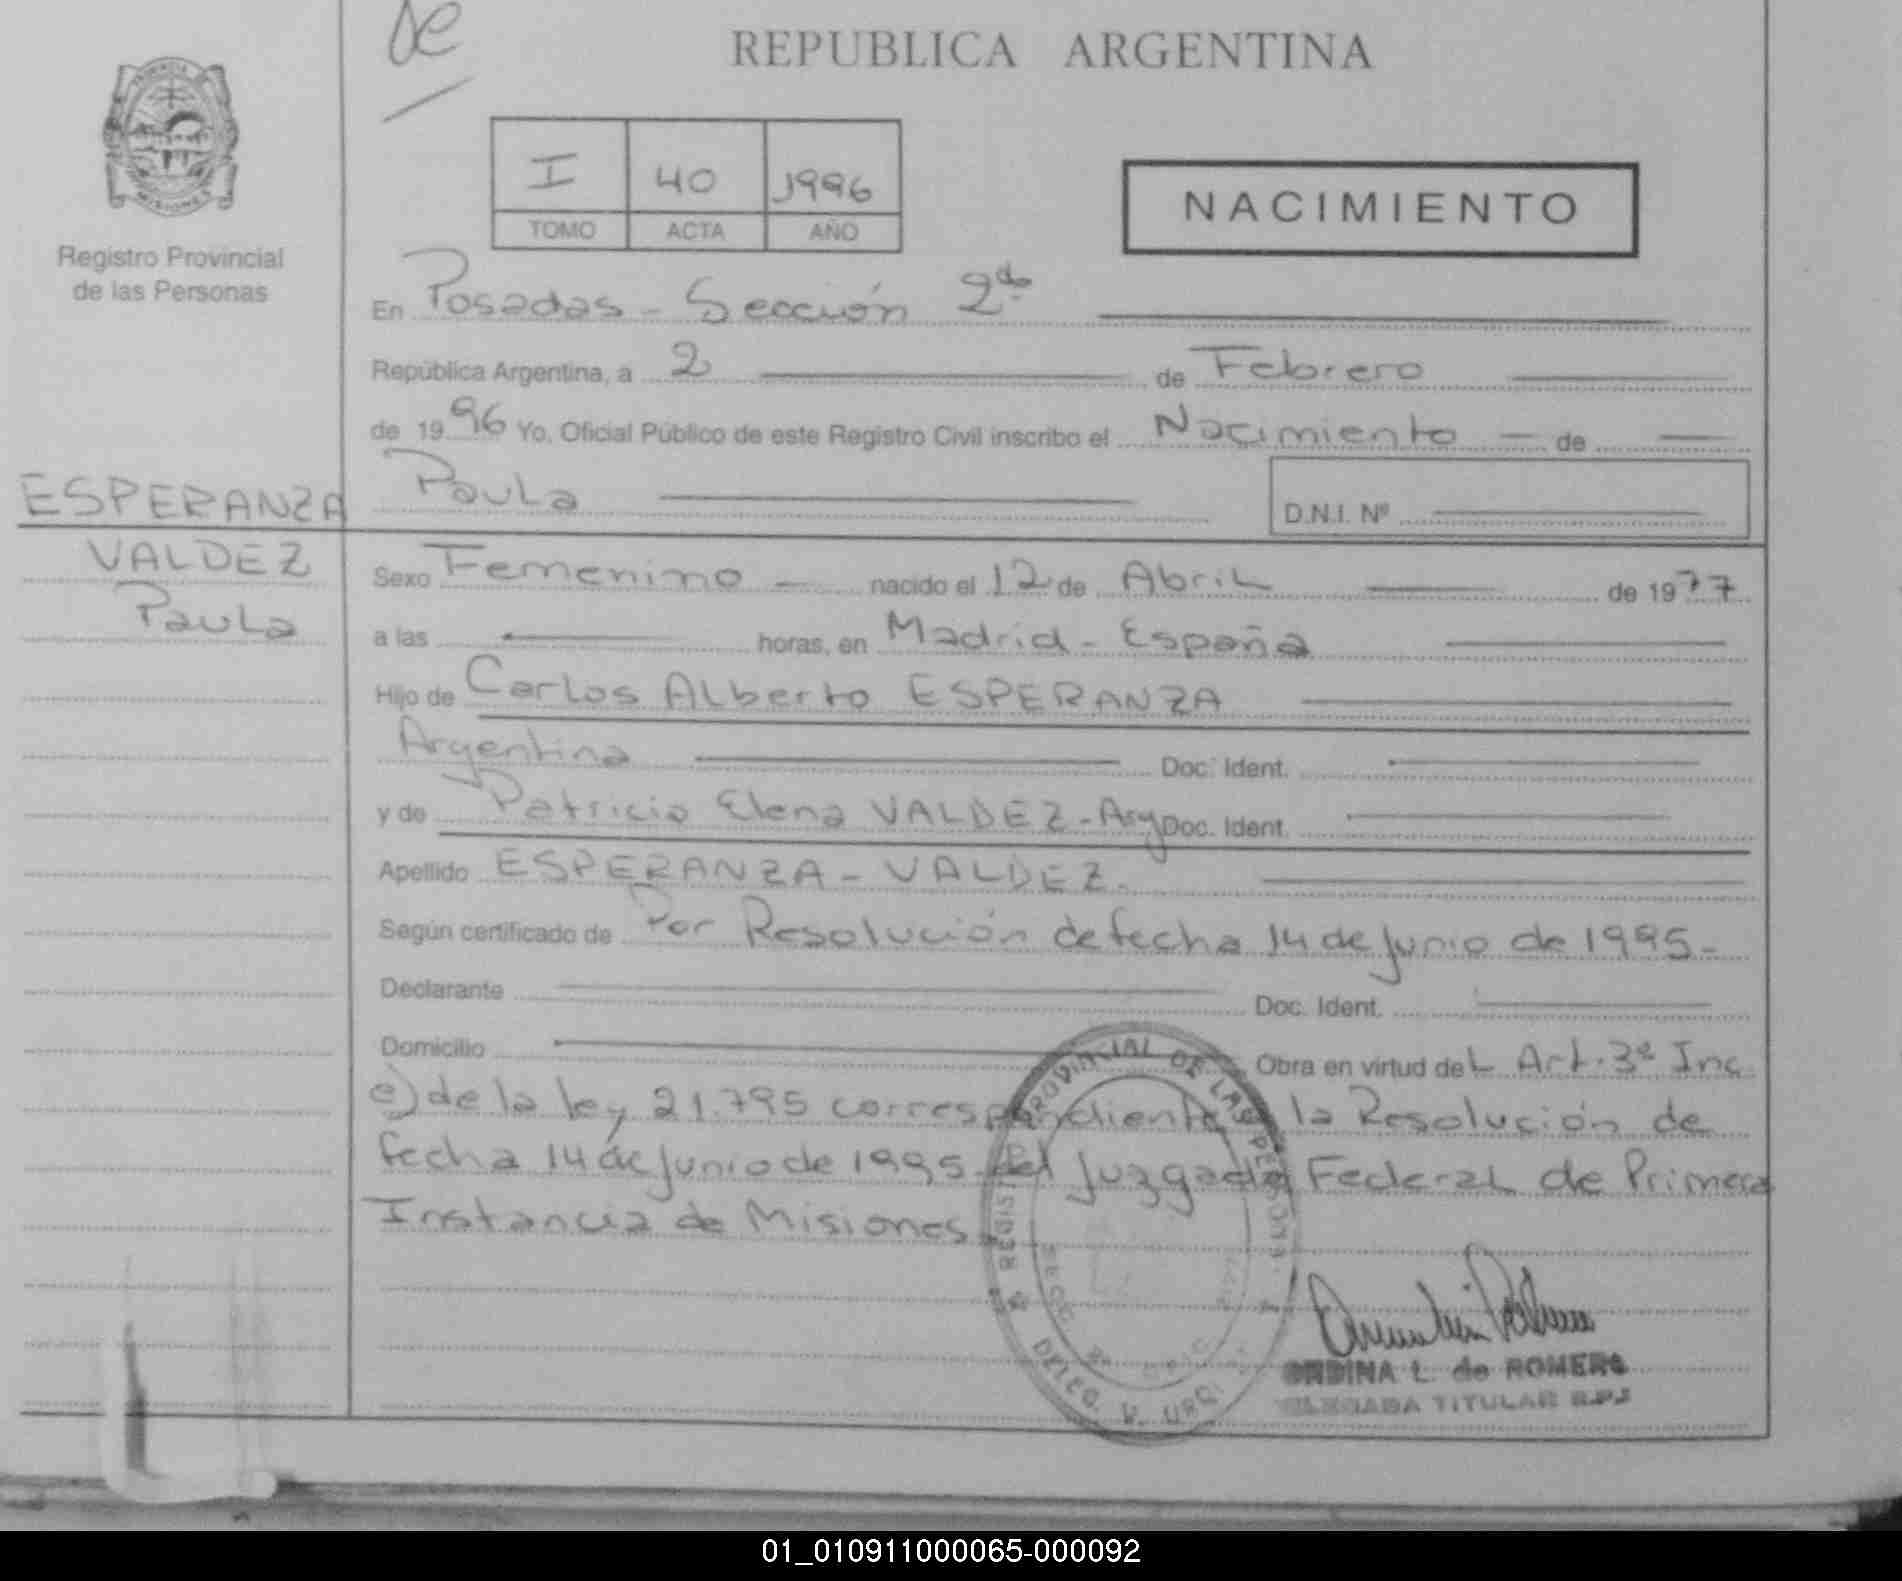 de
REPUBLICA ARGENTINA
PROVINCIA DE
MISIONES
Registro Provincial
de las Personas
I 40 1996
TOMO ACTA AÑO
NACIMIENTO
En Posadas - Sección 2da
República Argentina, a 2 de Febrero
de 1996 Yo, Oficial Público de este Registro Civil inscribo el Nacimiento de
Paula
D.N.I. Nº
ESPERANZA
VALDEZ
Paula
Sexo Femenino nacido el 12 de Abril de 1977
a las horas, en Madrid - España
Hijo de Carlos Alberto ESPERANZA
Argentina Doc. Ident.
y de Patricia Elena VALDEZ - Arg Doc. Ident.
Apellido ESPERANZA - VALDEZ.
Según certificado de Por Resolución de fecha 14 de Junio de 1995.-
Declarante Doc. Ident.
Domicilio Obra en virtud del Art. 3º Inc.
e) de la ley 21.795 correspondiente a la Resolución de
fecha 14 de Junio de 1995 del Juzgado Federal de Primera
Instancia de Misiones
PROVINCIAL DE LAS PERSONAS
ORDINA L. de ROMERO
DELEGADA TITULAR R.P.J
01_010911000065-000092